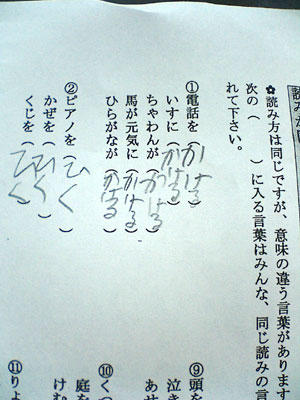 読みが
✿読み方は同じですが、意味の違う言葉があります
次の（　）に入る言葉はみんな、同じ読みの言
れて下さい。
①電話を（かける）
いすに（かける）
ちゃわんが（かける）
馬が元気に（かける）
ひらがなが（かける）
②ピアノを（ひく）
かぜを（ひく）
くじを（ひく）
⑨頭を
泣き
あせ
⑩くつ
庭を
けむ
⑪りよ